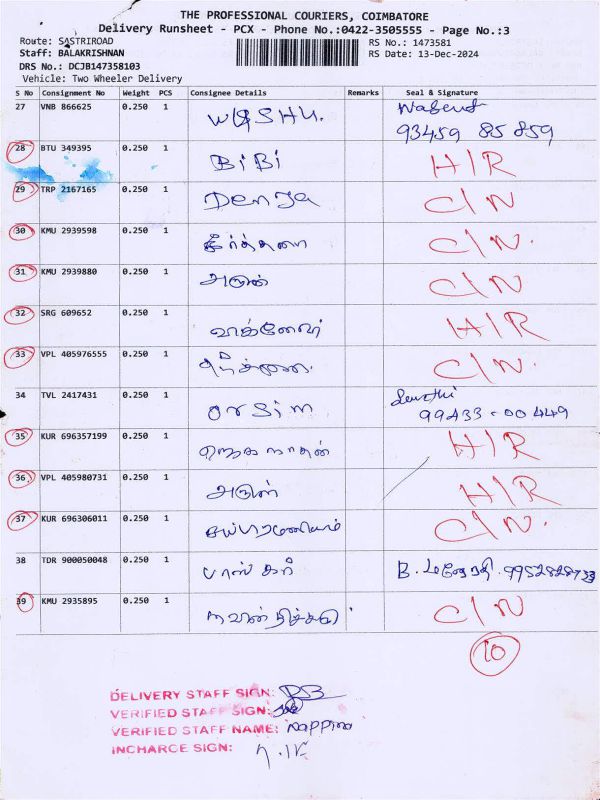 THE PROFESSIONAL COURIERS, COIMBATORE
Delivery Runsheet - PCX - Phone No.:0422-3505555 - Page No.:3
Route: SASTRIROAD RS No.: 1473581
Staff: BALAKRISHNAN RS Date: 13-Dec-2024
DRS No.: DCJB147358103
Vehicle: Two Wheeler Delivery
S No Consignment No Weight PCS Consignee Details Remarks Seal & Signature
27 VNB 866625 0.250 1
93459 85859
28 BTU 349395 0.250 1 BiBi H/R
29 TRP 2167165 0.250 1 C/N
30 KMU 2939598 0.250 1 கீர்த்தனா C/N.
31 KMU 2939880 0.250 1 அருண் C/N
32 SRG 609652 0.250 1 H/R
33 VPL 405976555 0.250 1 C/N.
34 TVL 2417431 0.250 1 orsim
99433-00449
35 KUR 696357199 0.250 1 H/R
36 VPL 405980731 0.250 1 அருண் H/R
37 KUR 696306011 0.250 1 C/N.
38 TDR 900050048 0.250 1 பாஸ்கர் B.
39 KMU 2935895 0.250 1 C/N
10
DELIVERY STAFF SIGN:
VERIFIED STAFF SIGN:
VERIFIED STAFF NAME:
INCHARGE SIGN: